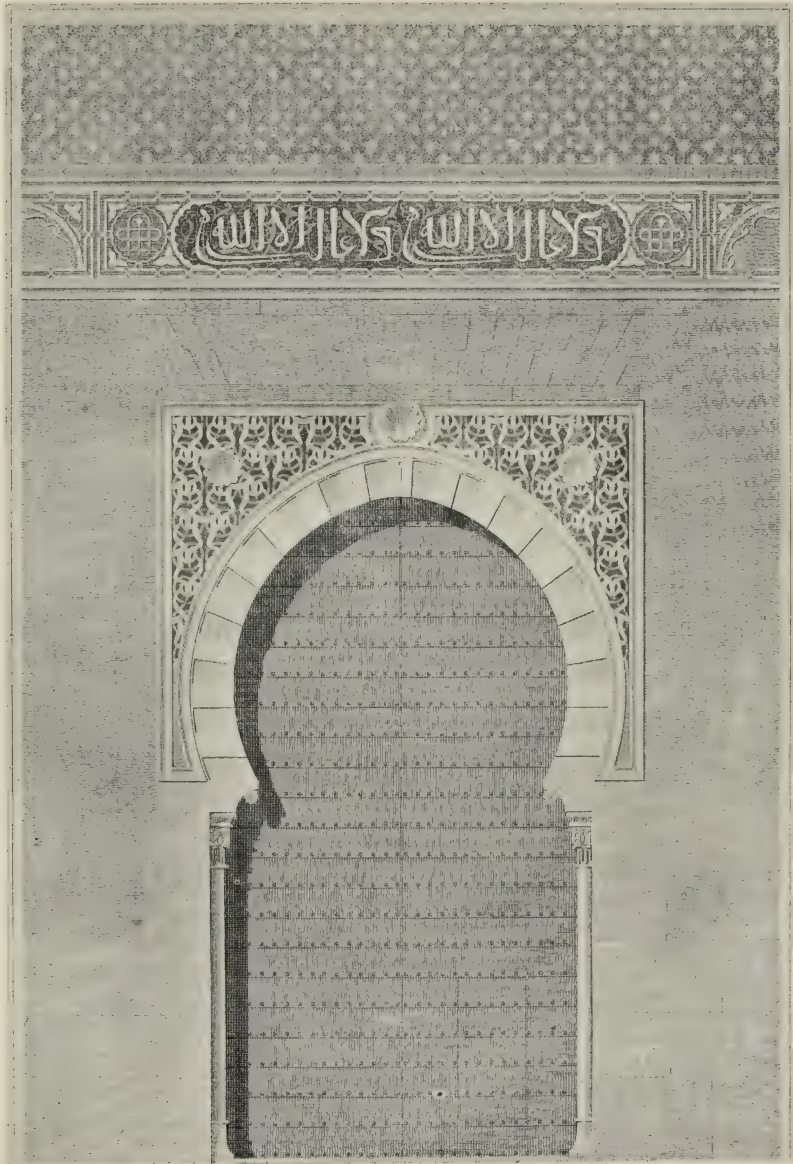 ولا غالب الا الله ولا غالب الا الله